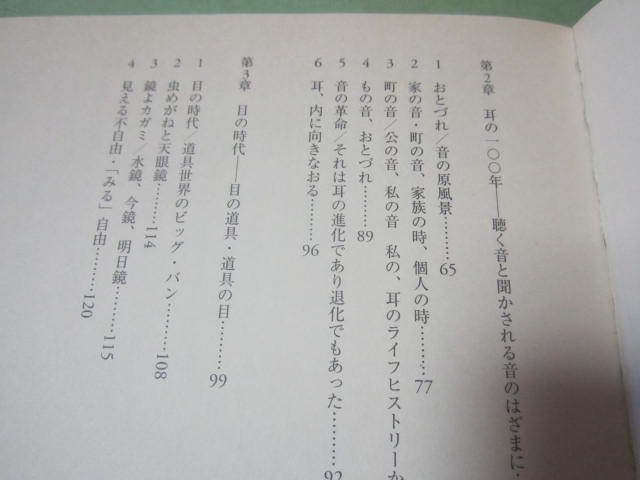 第2章 耳の一〇〇年——聴く音と聞かされる音のはざまに
1 おとづれ/音の原風景………65
2 家の音・町の音、家族の時、個人の時………77
3 町の音/公の音、私の音 私の、耳のライフヒストリーか
4 もの音、おとづれ………89
5 音の革命/それは耳の進化であり退化でもあった………92
6 耳、内に向きなおる………96
第3章 目の時代——目の道具・道具の目………99
1 目の時代/道具世界のビッグ・バン………108
2 虫めがねと天眼鏡………114
3 鏡よカガミ/水鏡、今鏡、明日鏡………115
4 見える不自由・「みる」自由………120